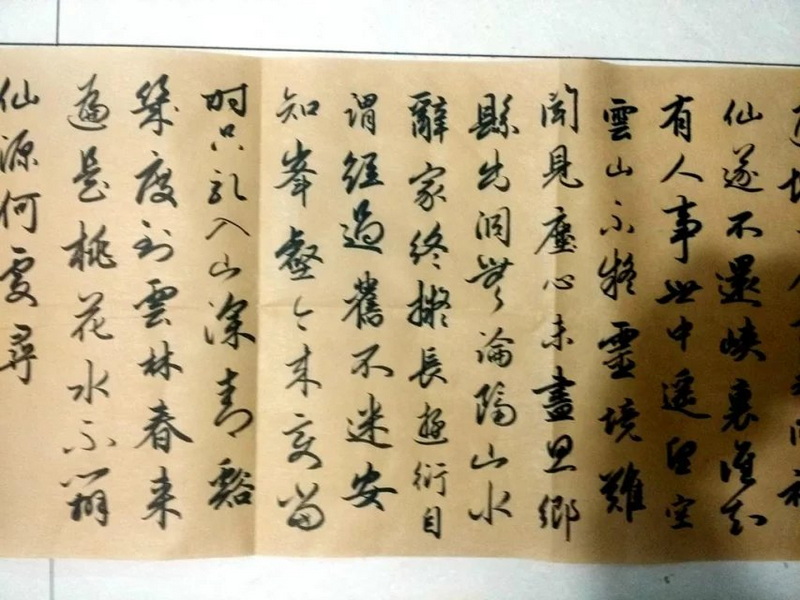 仙遂不還峽裏誰知
有人事世中遥望空
雲山不疑靈境難
聞見塵心未盡思鄉
縣出洞無論隔山水
辭家終擬長遊衍自
謂經過舊不迷安
知峯壑今来變當
時只記入山深青谿
幾度到雲林春来
遍是桃花水不辨
仙源何處尋